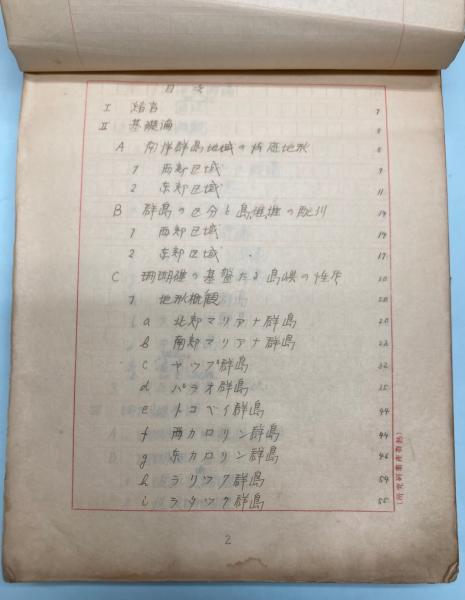 目次
I 緒言 7
II 基礎論 8
A 南洋群島地域の海底地形 8
1 西部区域 9
2 東部区域 11
B 群島の区分と島堆礁の配列 14
1 西部区域 14
2 東部区域 17
C 珊瑚礁の基盤たる島嶼の性質 20
1 地形概観 20
a 北部マリアナ群島 20
b 南部マリアナ群島 22
c ヤップ群島 32
d パラオ群島 35
e トコベイ群島 44
f 西カロリン群島 44
g 东カロリン群島 46
h ラリック群島 54
i ラタック群島 55
(熱帯産業研究所)
2